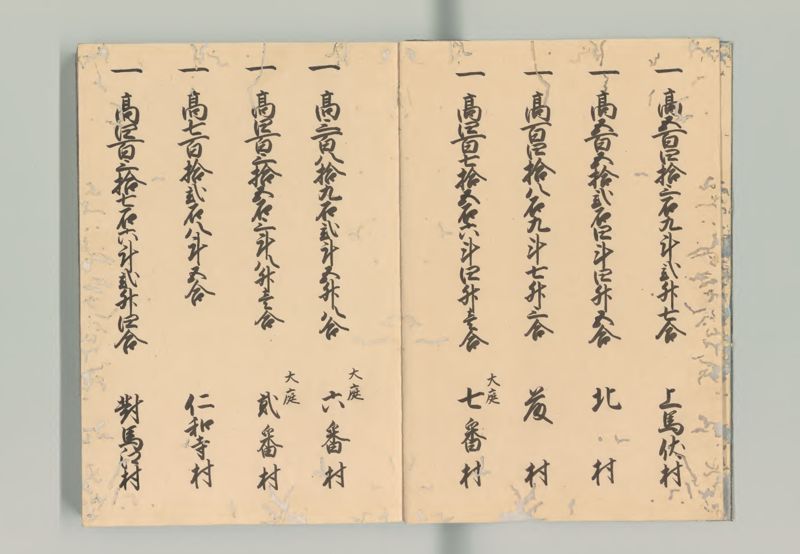 一 高五百四拾三石九斗弐升七合 上馬伏村
一 高五百五拾弐石四斗四升五合 北村
一 高百四拾八石九斗七升三合 村
一 高四百七拾五石六斗四升壱合 大庭 七番村
一 高三百八拾九石弐斗五升八合 大庭 六番村
一 高四百六拾五石三斗八升壱合 大庭 貳番村
一 高七百拾弐石八斗五合 仁和寺村
一 高四百六拾七石六斗弐升四合 對馬江村